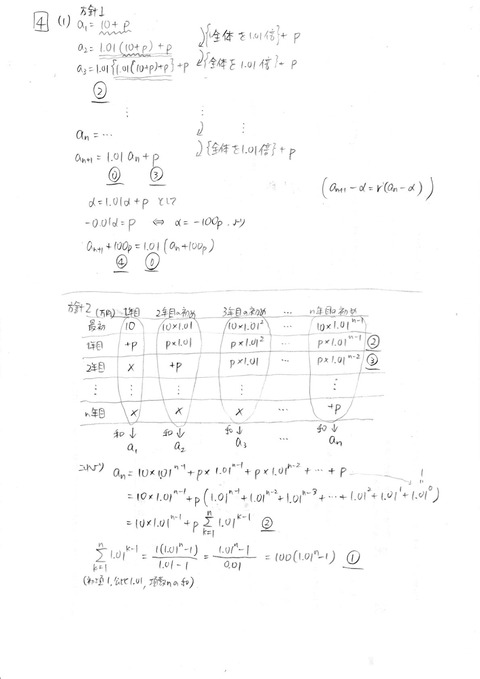 4 (1) 方針1
a₁ = 10 + p
a₂ = 1.01(10+p) + p {全体を1.01倍} + p
a₃ = 1.01{1.01(10+p)+p} + p {全体を1.01倍} + p
②
⋮ ⋮ ⋮
aₙ = …
aₙ₊₁ = 1.01 aₙ + p {全体を1.01倍} + p
⓪ ③
(aₙ₊₁ - α = r(aₙ - α))
α = 1.01α + p として
-0.01α = p ⇔ α = -100p より
aₙ₊₁ + 100p = 1.01(aₙ + 100p)
④ ⓪
方針2 (万円) 1年目 2年目の初め 3年目の初め … n年目の初め
最初 10 10×1.01 10×1.01² … 10×1.01ⁿ⁻¹
1年目 +p p×1.01 p×1.01² … p×1.01ⁿ⁻¹ ②
2年目 × +p p×1.01 p×1.01ⁿ⁻² ③
⋮ ⋮ ⋮ ⋮ ⋮
n年目 × × × … +p
和↓ 和↓ 和↓ 和↓
a₁ a₂ a₃ … aₙ
aₙ = 10×1.01ⁿ⁻¹ + p×1.01ⁿ⁻¹ + p×1.01ⁿ⁻² + … + p
1
= 10×1.01ⁿ⁻¹ + p(1.01ⁿ⁻¹ + 1.01ⁿ⁻² + 1.01ⁿ⁻³ + … + 1.01² + 1.01¹ + 1.01⁰)
= 10×1.01ⁿ⁻¹ + p Σₖ₌₁ⁿ 1.01ᵏ⁻¹ ②
Σₖ₌₁ⁿ 1.01ᵏ⁻¹ = 1(1.01ⁿ-1)/(1.01-1) = (1.01ⁿ-1)/0.01 = 100(1.01ⁿ-1) ①
(初項1, 公比1.01, 項数nの和)